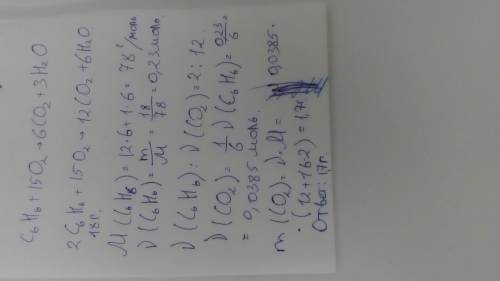 C₆H₆ + 15O₂ → 6CO₂ + 3H₂O
2C₆H₆ + 15O₂ → 12CO₂ + 6H₂O
18г.
M(C₆H₆) = 12·6 + 1·6 = 78 г/моль
ν(C₆H₆) = m/M = 18/78 = 0,23 моль
ν(C₆H₆) : ν(CO₂) = 2 : 12
ν(CO₂) = 1/6 ν(C₆H₆) = 0,23/6 =
= 0,0385 моль
m(CO₂) = ν·M = 0,0385·
·(12+16·2) = 1,7г
Ответ: 1,7г.